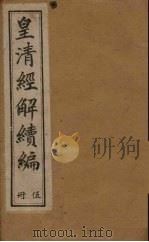 皇清經解續編
伍
冊
研狗